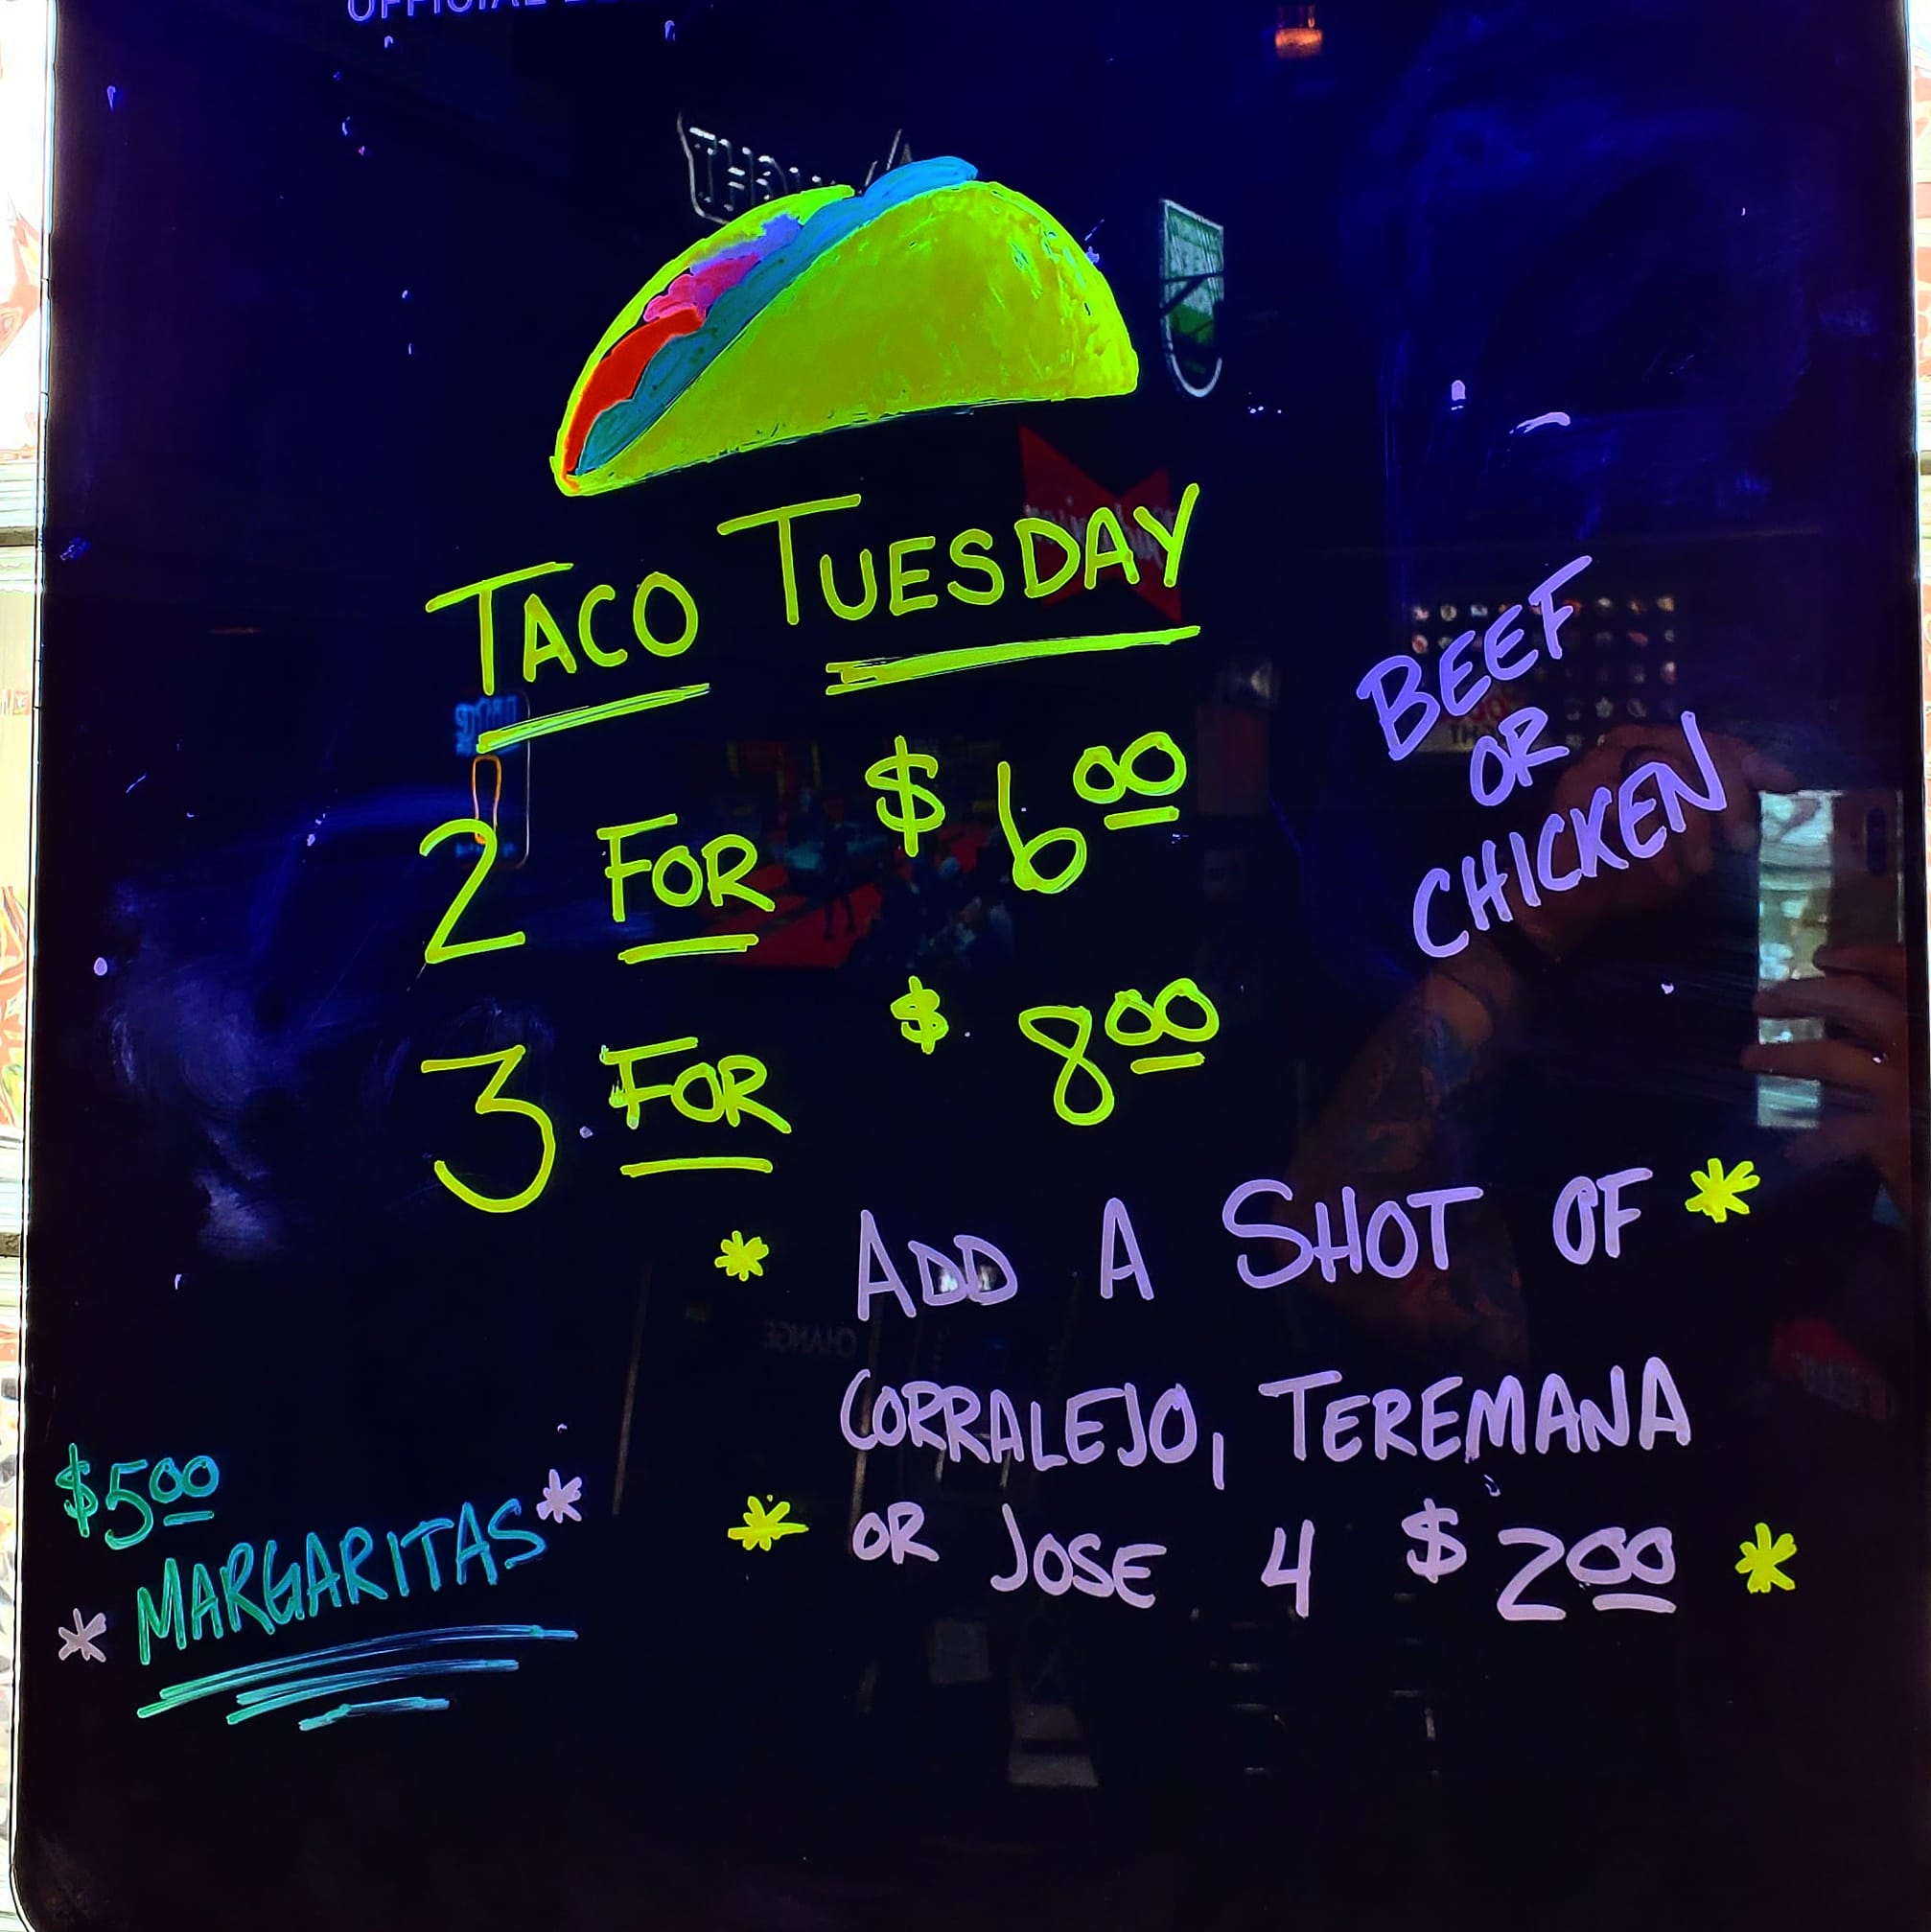 OFFICIAL
TACO TUESDAY
2 FOR $6.00
3 FOR $8.00
BEEF
OR
CHICKEN
* ADD A SHOT OF *
CORRALEJO, TEREMANA
* OR JOSE 4 $2.00 *
$5.00
* MARGARITAS *
CHANGE